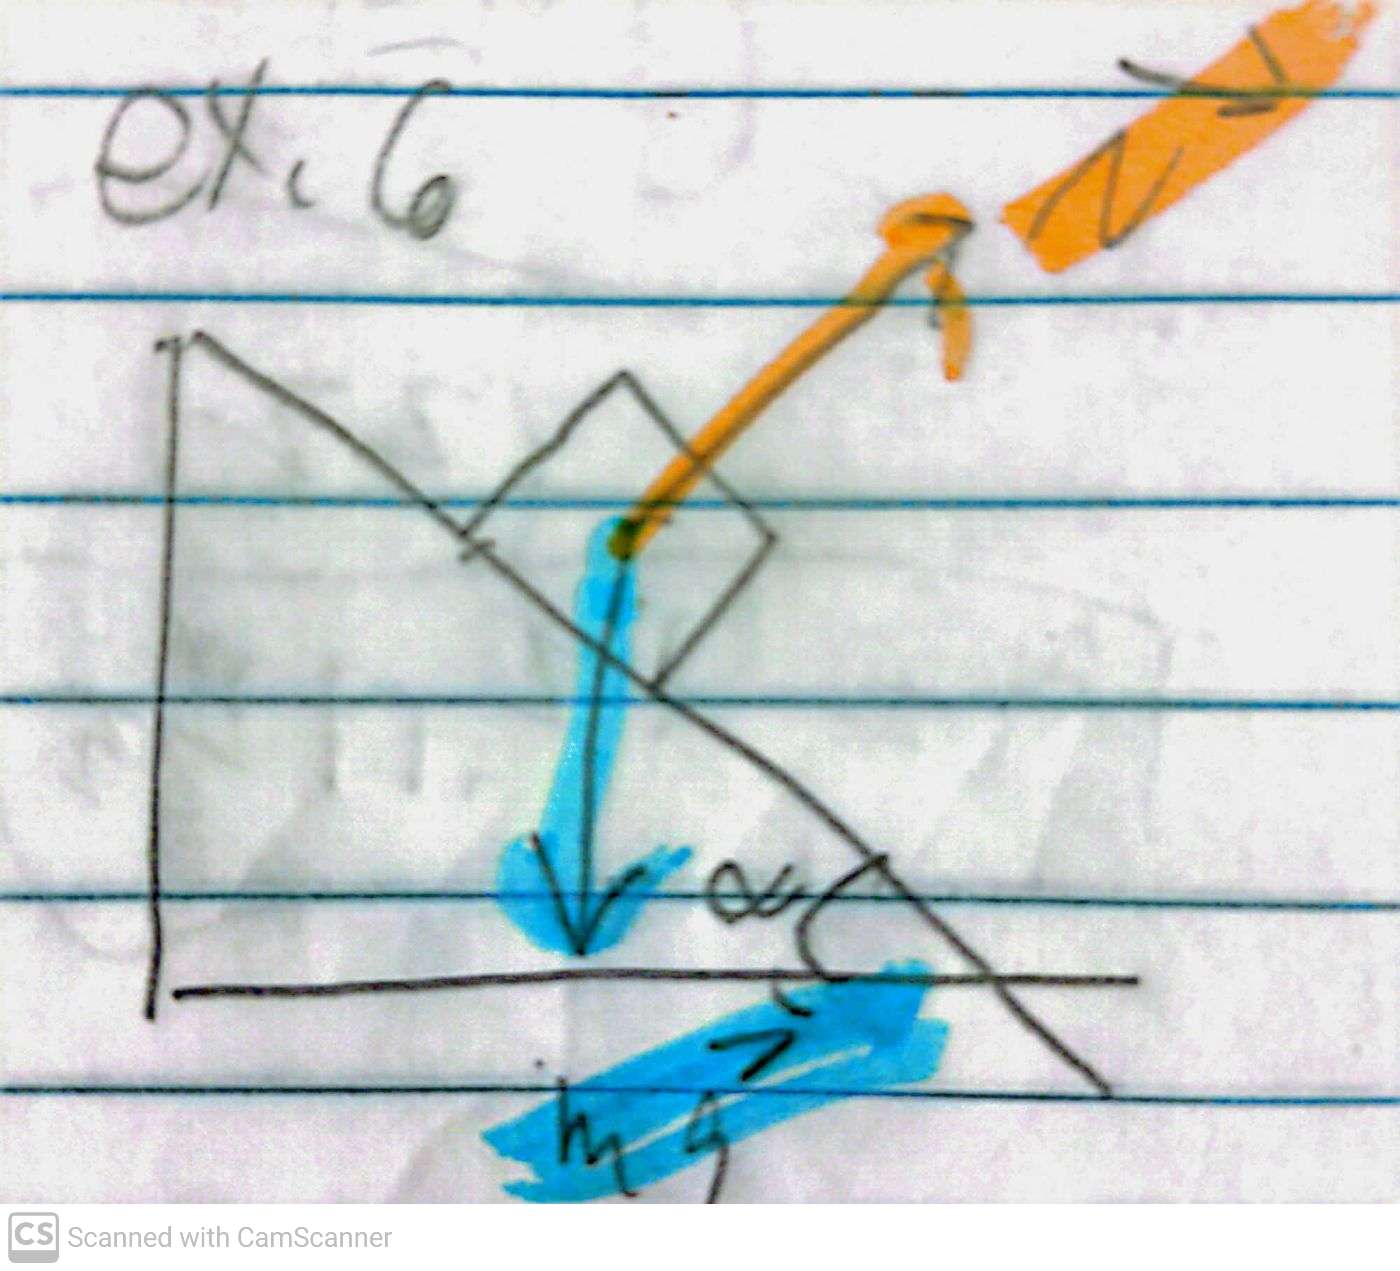 ex. 6
N
α
mg
CS Scanned with CamScanner